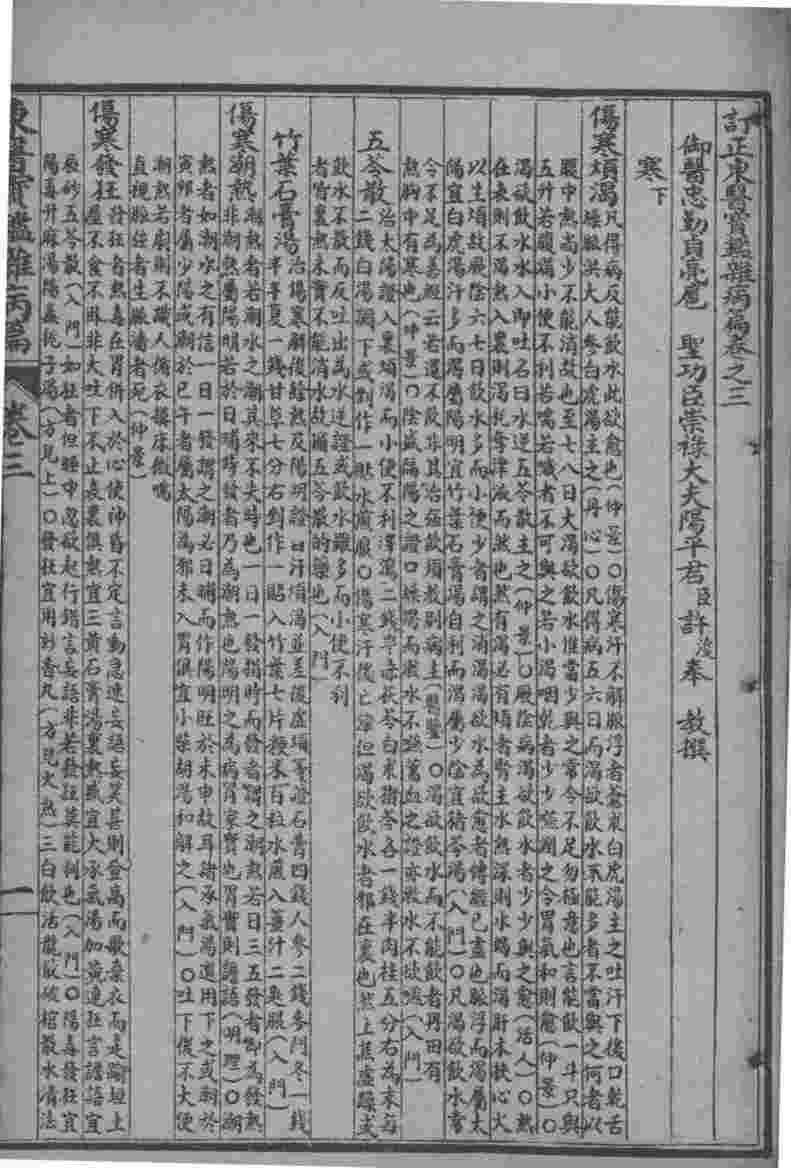 訂正東醫寶鑑雜病篇卷之三
御醫忠勤貞亮扈　聖功臣崇祿大夫陽平君臣許浚奉　教撰
寒下
傷寒煩渴 凡得病反能飮水此欲愈也(仲景)〇傷寒汗不解脉浮者蒼朮白虎湯主之吐汗下後口乾舌
燥脉洪大人參白虎湯主之(丹心)〇凡得病五六日而渴欲飮水不能多者不當與之何者以
腹中熱尚少不能消故也至七八日大渴欲飮水惟當少與之常令不足勿極意也言能飮一斗只與
五升若腹滿小便不利若喘若噦者不可與之若小渴咽乾者少少潤之令胃氣和則愈(仲景)〇
渴欲飮水水入卽吐名曰水逆五苓散主之(仲景)〇厥陰病渴欲飮水者少少與之愈(活人)〇熱
在表則不渴熱入裏則渴耗奪津液而然也然有渴必有煩者腎主水熱深則水竭而渴肝木挾心火
以生煩故厥陰六七日飮水多而小便少者謂之消渴渴欲水爲欲愈者傳經已盡也脉浮而渴屬太
陽宜白虎湯汗多而渴屬陽明宜竹葉石膏湯自利而渴屬少陰宜猪苓湯(入門)〇凡渴欲飮水常
令不足爲善經云若還不飮非其治强飮須敎別病生(醫鑒)〇渴欲飮水而不能飮者丹田有
熱胸中有寒也(仲景)〇陰盛隔陽之證口燥渴而漱水不嚥蓄血之證亦漱水不欲嚥(入門)
五苓散 治太陽證入裏煩渴而小便不利澤瀉二錢半赤茯苓白朮猪苓各一錢半肉桂五分右爲末每
二錢白湯調下或剉作一貼水煎服〇傷寒汗後亡津但渴欲飮水者邪在裏也若上焦虛燥或
飮水不散而反吐出爲水逆證或飮水雖多而小便不利
者皆裏熱未實不能消水故爾五苓散的藥也(入門)
竹葉石膏湯 治傷寒解後餘熱及陽明證自汗煩渴並差後虛煩等證石膏四錢人參二錢麥門冬一錢
半半夏一錢甘草七分右剉作一貼入竹葉七片粳米百粒水煎入薑汁二匙服(入門)
傷寒潮熱 潮熱者若潮水之潮其來不失時也一日一發指時而發者謂之潮熱若日三五發者卽爲發熱
非潮熱屬陽明若於日晡時發者乃爲潮熱也陽明之爲病胃家實也胃實則譫語(明理)〇潮
熱者如潮水之有信一日一發謂之潮必日晡而作陽明旺於未申故耳諸承氣湯選用下之或潮於
寅卯者屬少陽或潮於巳午者屬太陽爲邪未入胃俱宜小柴胡湯和解之(入門)〇吐下後不大便
潮熱若劇則不識人循衣摸床微喘
直視脉弦者生脉濇者死(仲景)
傷寒發狂 發狂者熱毒在胃倂入於心使神昏不定言動急速妄語妄笑甚則登高而歌棄衣而走踰垣上
屋不食不臥非大吐下不止表裏俱熱宜三黃石膏湯裏熱甚宜大承氣湯加黃連狂言譫語宜
辰砂五苓散(入門)如狂者但睡中忽欲起行錯言妄語非若發狂莫能制也(入門)〇陽毒發狂宜
陽毒升麻湯陽毒梔子湯(方見上)〇發狂宜用妙香丸(方見火熱)三白飮活龍散破棺散水漬法
東醫寶鑑雜病篇　卷三　一